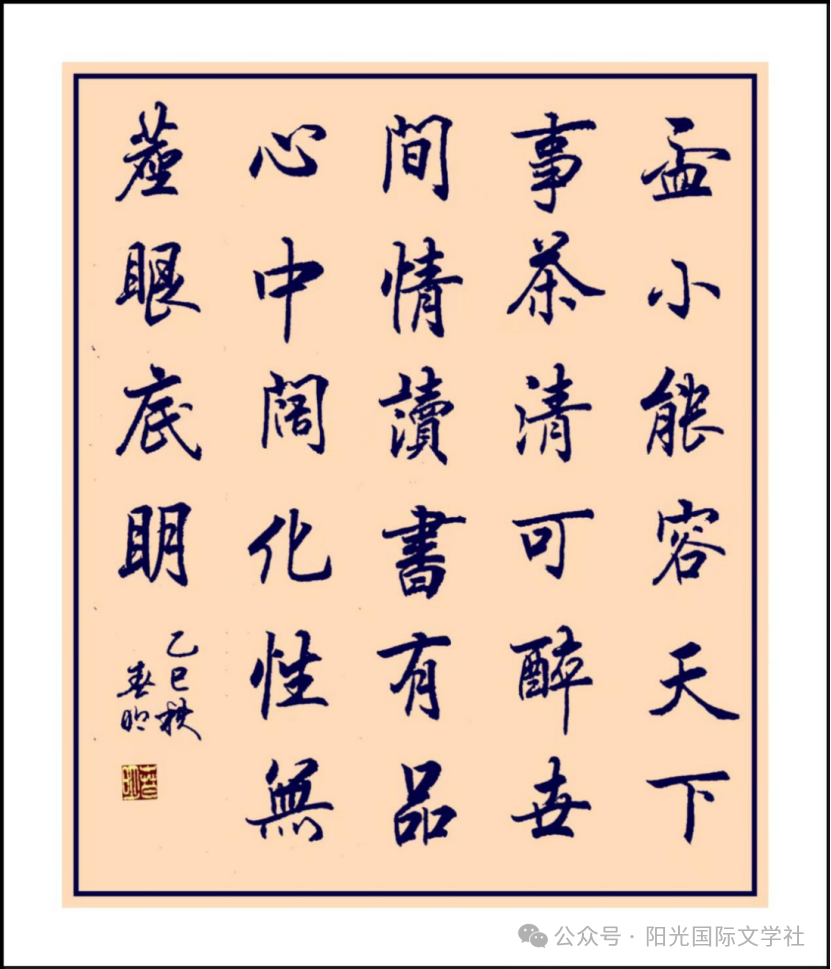 盃小能容天下
事茶清可醉世
間情讀書有品
心中阔化性無
塵眼底明
乙巳秋
春明
公众号·阳光国际文学社